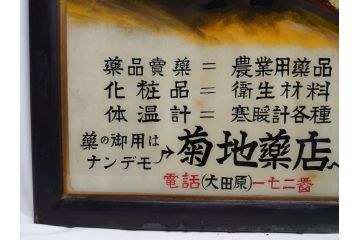 藥品賣藥＝農業用藥品
化粧品＝衛生材料
体温計＝寒暖計各種
藥の御用は
ナンデモ→菊地藥店へ
電話(大田原)一七二番